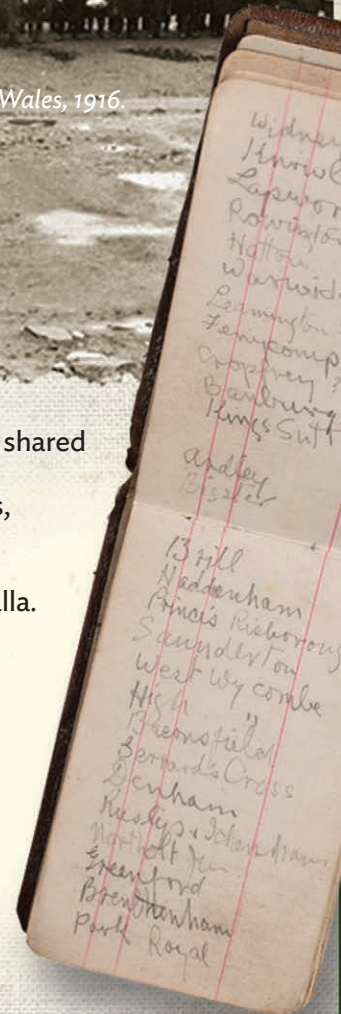 Wales, 1916.
shared
s,
lla.
Widney
Knowl
Lapwor
Rowington
Hatton
Warwick
Leamington
Fennycomp
Cropprey ?
Banbury
Kings Sutt
Ardley
Bister
Brill
Haddenham
Princis Risboroug
Saunderton
West Wycombe
High "
Beaconsfield
Gerrard's Cross
Denham
Ruslip & Ickenham
Northolt Jun
Greenford
Brenthenham
Park Royal